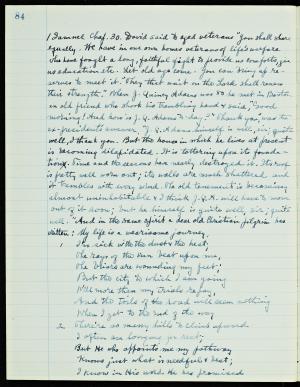 84
1 Samuel Chap. 30. David said to aged veterans "you shall share
equally. We have in our own homes veterans of life's warfare
who have fought a long, faithful fight to provide us comforts, give
us education etc. Let old age come. You can bring up re-
serves to meet it. "They that wait on the Lord shall renew
their strength." When J. Quincy Adams was 80 he met in Boston
an old friend who shook his trembling hand & said, "Good
morning! And how is J. Q. Adams to-day?" "Thank you," was the
ex-president's answer, "J. Q. Adams himself is well, sir, quite
well, I thank you. But the house in which he lives at present
is becoming dilapidated. It is tottering upon its founda-
tions. Time and the seasons have nearly destroyed it. Its roof
is pretty well worn out; its walls are much shattered and
it trembles with every wind. The old tenement is becoming
almost uninhabitable & I think J. Q. A. will have to move
out of it soon; but he himself is quite well, sir, quite
well." And in the same spirit a dear old Christian pilgrim has
written; My life is a wearisome journey,
1 I'm sick with the dust & the heat;
The rays of the sun beat upon me,
The briars are wounding my feet;
But the city to which I am going
Will more than my trials repay,
And the toils of the road will seem nothing
When I get to the end of the way
2 There're so many hills to climb upward
I often am longing for rest;
But He who appoints me my pathway
Knows just what is needful & best;
I know in His word He has promised